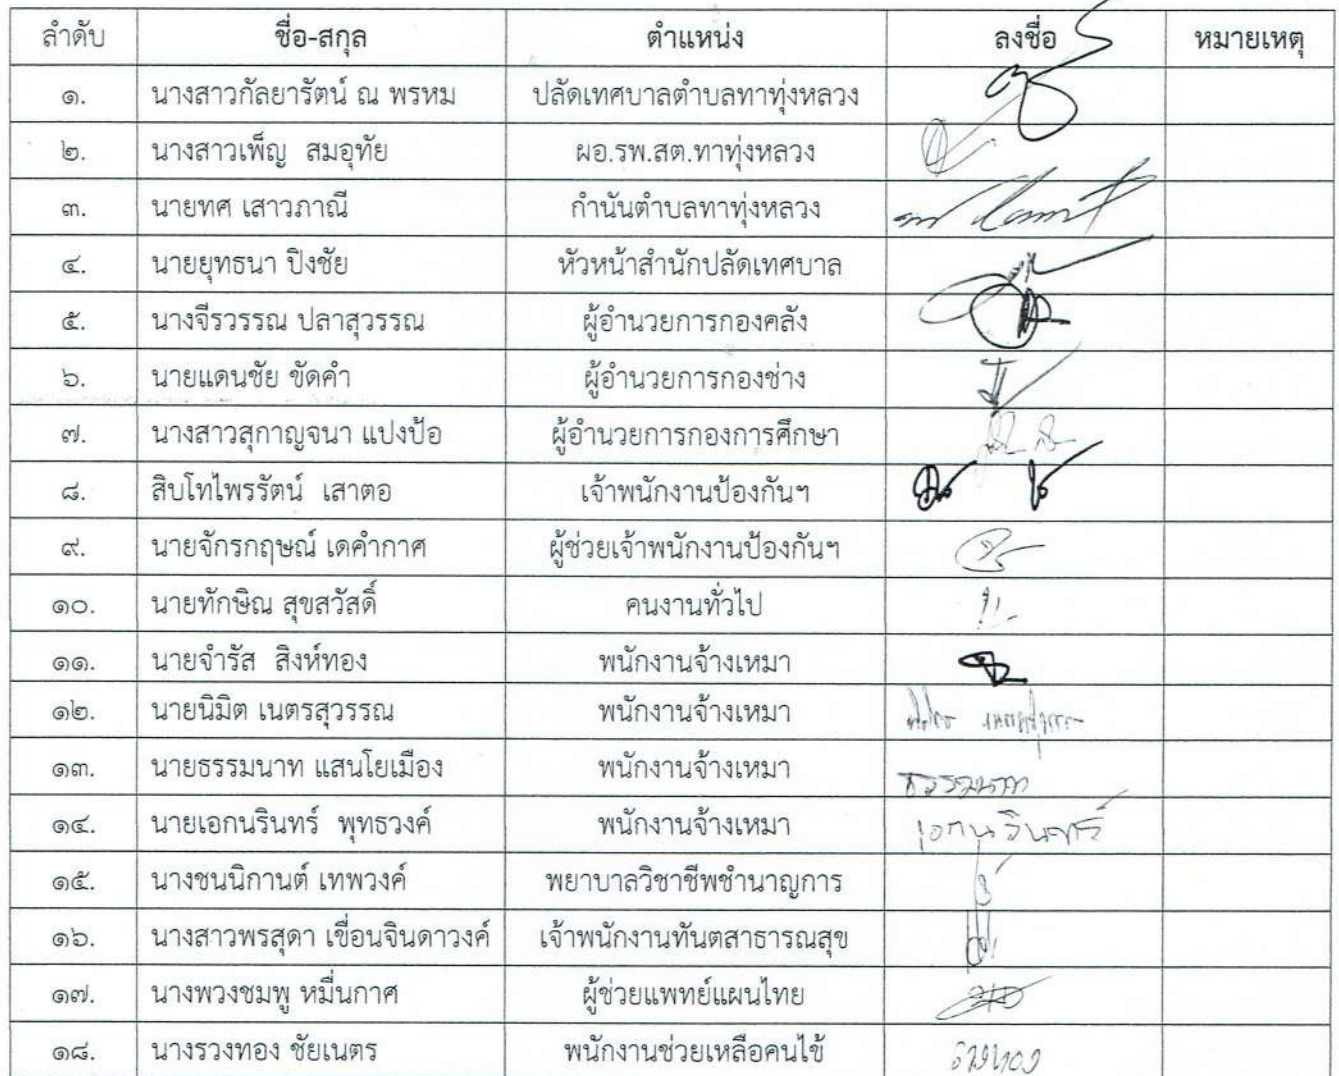 ลำดับ ชื่อ-สกุล ตำแหน่ง ลงชื่อ หมายเหตุ
๑. นางสาวกัลยารัตน์ ณ พรหม ปลัดเทศบาลตำบลทาทุ่งหลวง
๒. นางสาวเพ็ญ สมอุทัย ผอ.รพ.สต.ทาทุ่งหลวง
๓. นายทศ เสาวภาณี กำนันตำบลทาทุ่งหลวง
๔. นายยุทธนา ปิงชัย หัวหน้าสำนักปลัดเทศบาล
๕. นางจีรวรรณ ปลาสุวรรณ ผู้อำนวยการกองคลัง
๖. นายแดนชัย ขัดคำ ผู้อำนวยการกองช่าง
๗. นางสาวสุกาญจนา แปงป้อ ผู้อำนวยการกองการศึกษา
๘. สิบโทไพรรัตน์ เสาตอ เจ้าพนักงานป้องกันฯ
๙. นายจักรกฤษณ์ เดคำกาศ ผู้ช่วยเจ้าพนักงานป้องกันฯ
๑๐. นายทักษิณ สุขสวัสดิ์ คนงานทั่วไป
๑๑. นายจำรัส สิงห์ทอง พนักงานจ้างเหมา
๑๒. นายนิมิต เนตรสุวรรณ พนักงานจ้างเหมา
๑๓. นายธรรมนาท แสนโยเมือง พนักงานจ้างเหมา ธรรมนาท
๑๔. นายเอกนรินทร์ พุทธวงค์ พนักงานจ้างเหมา เอกนรินทร์
๑๕. นางชนนิกานต์ เทพวงค์ พยาบาลวิชาชีพชำนาญการ
๑๖. นางสาวพรสุดา เขื่อนจินดาวงค์ เจ้าพนักงานทันตสาธารณสุข
๑๗. นางพวงชมพู หมื่นกาศ ผู้ช่วยแพทย์แผนไทย
๑๘. นางรวงทอง ชัยเนตร พนักงานช่วยเหลือคนไข้ รวงทอง